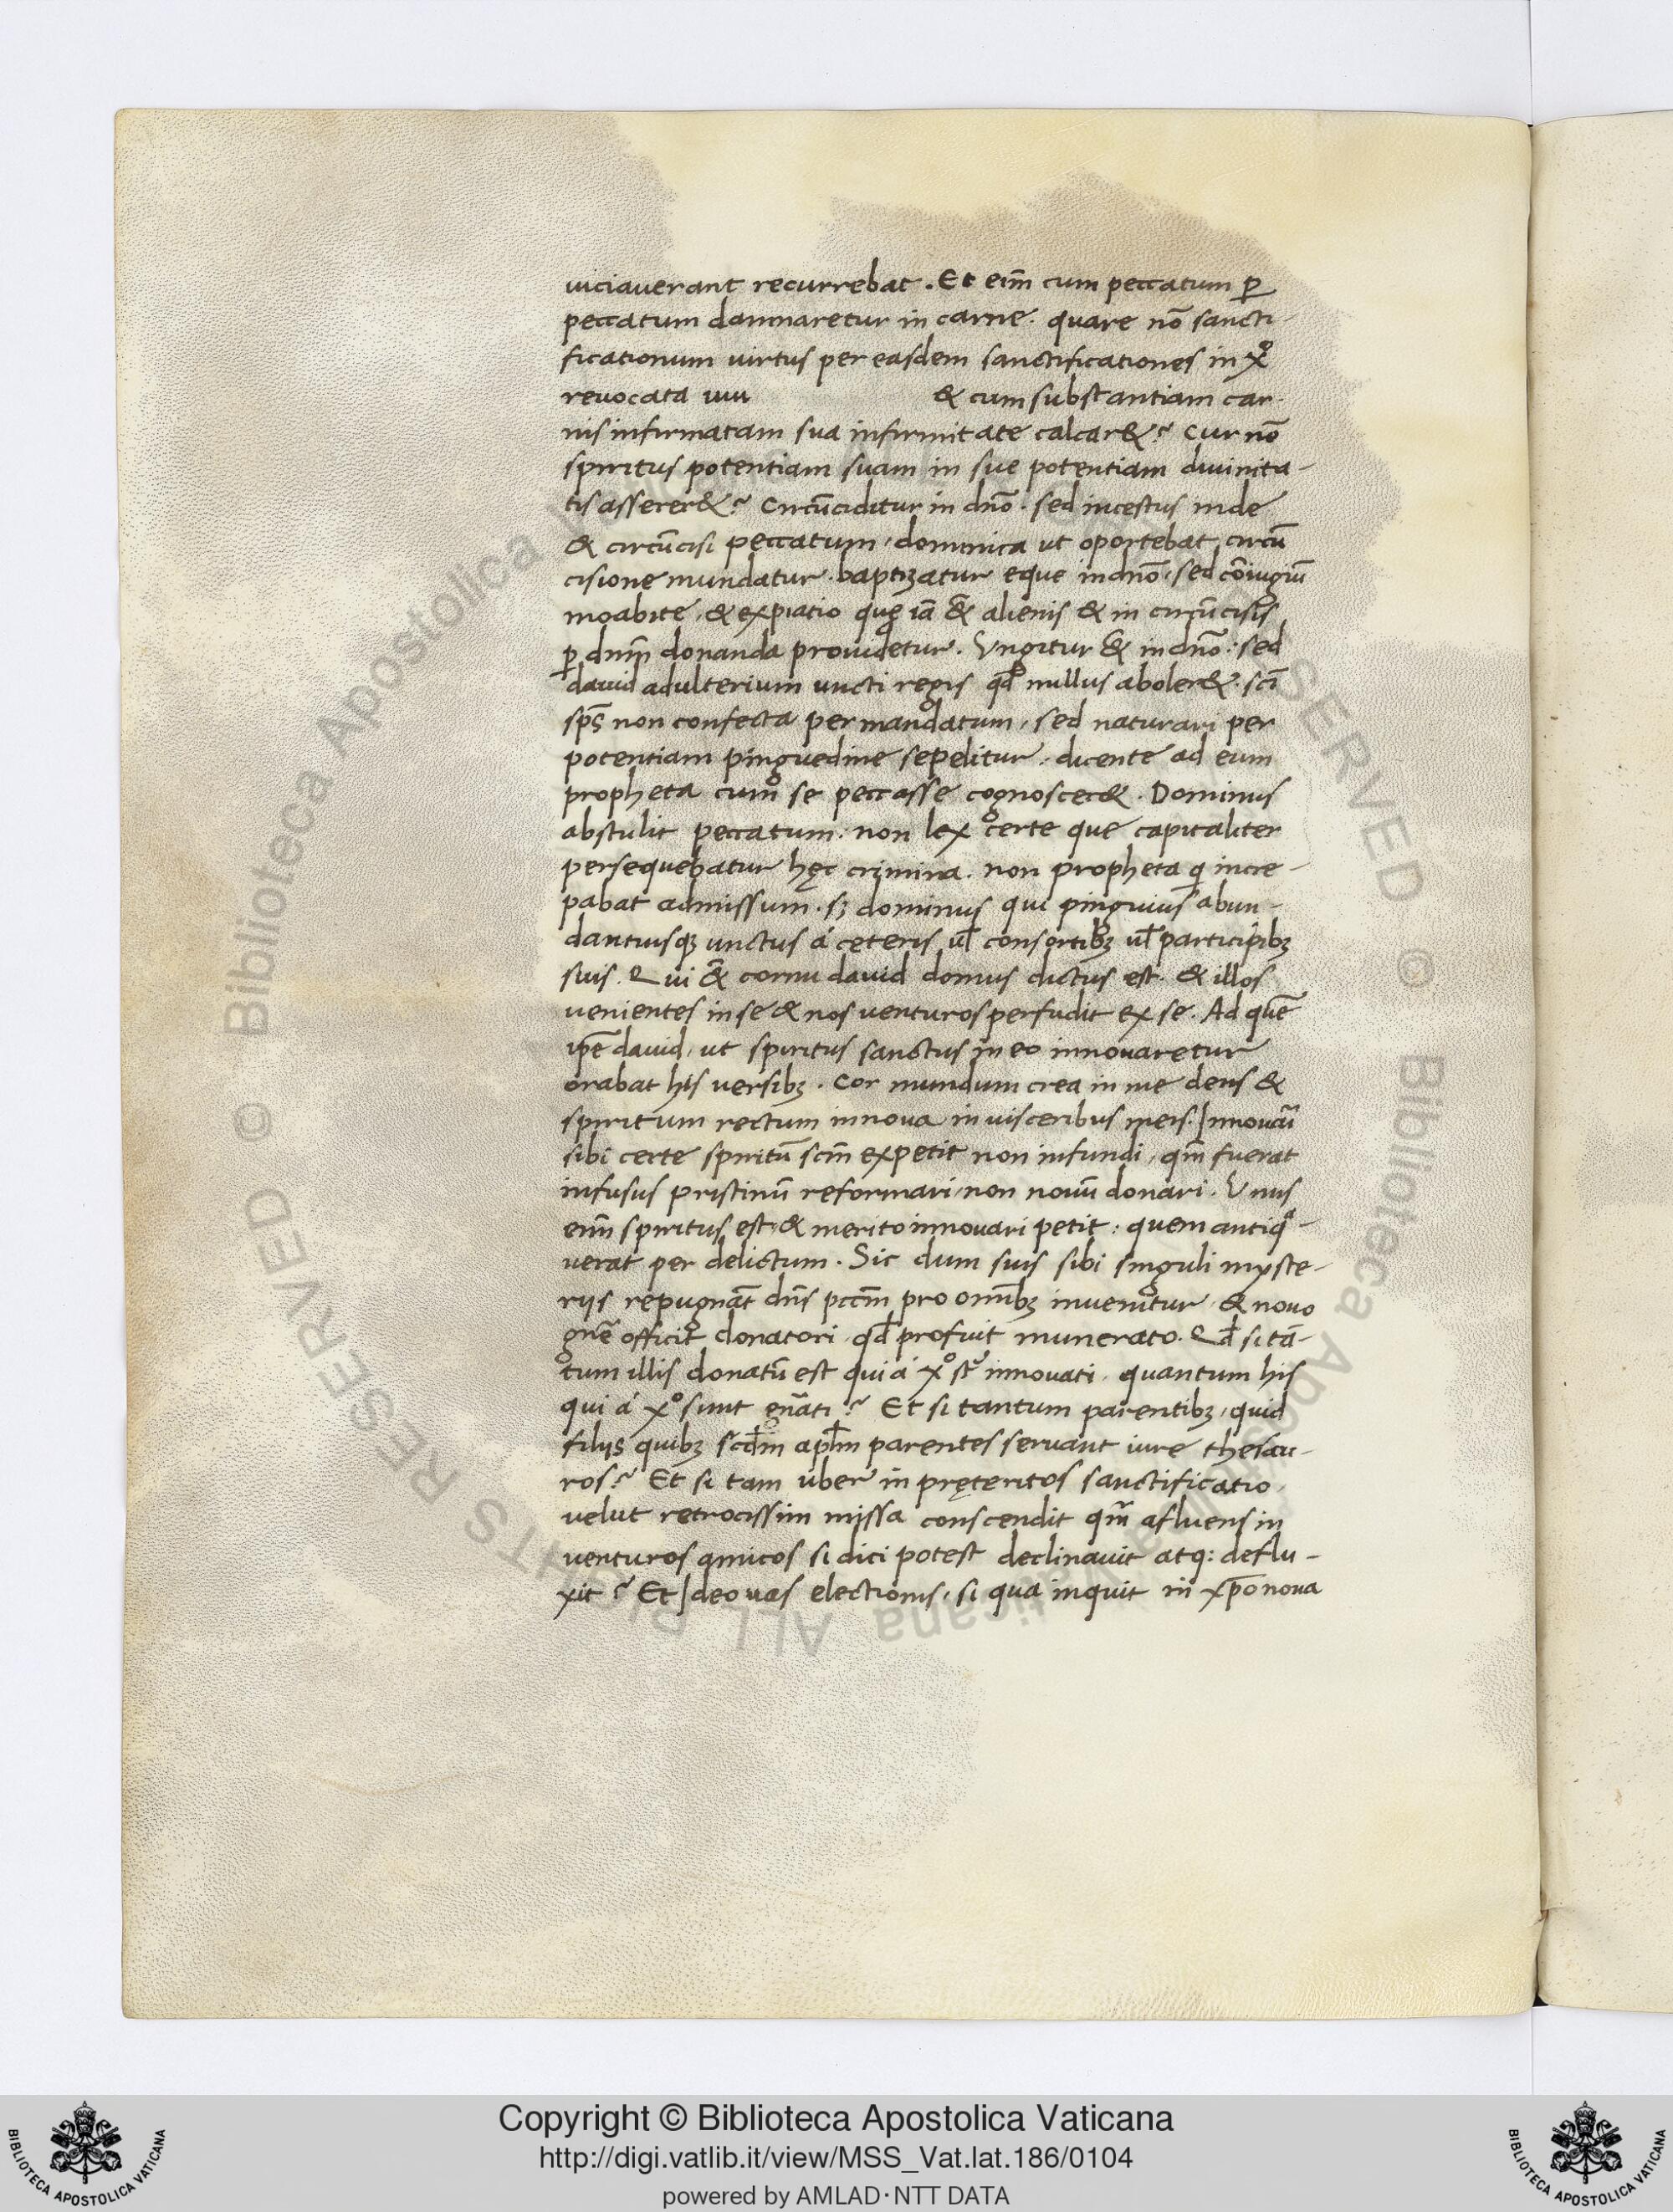 uiciauerant recurrebat. Et eim̄ cum peccatum ꝑ
peccatum damnaretur in carne. quare nō sancti-
ficationum uirtus per easdem sanctificationes in xº
reuocata uiu & cum substantiam car-
nis infirmatam sua infirmitate calcar&? Cur nō
spiritus potentiam suam in sue potentiam diuinita-
tis asserer&? Circūciditur in dnō. sed incestus inde
& circūcisi peccatum, dominica ut oportebat circū
cisione mundatur. baptizatur eque in dnō, sed cōiugiū
moabite, & expiatio quę iā &̄ alienis & in circūcisis
ꝑ dnm̄ donanda prouidetur. Vngitur &̄ in dnō: sed
dauid adulterium uncti regis qđ nullus aboler&. sci̅
sps̄ non confecta per mandatum, sed naturari per
potentiam pinguedine sepelitur. dicente ad eum
propheta cum se peccasse cognoscer&. Dominus
abstulit peccatum. non lex certe que capitaliter
persequebatur hęc crimina. non propheta qi incre-
pabat admissum. sꝫ dominus qui pinguius abun-
dantiusqꝫ unctus á cęteris ul̄ consortibꝫ ul̄ participibꝫ
suis. Qui &̄ cornu dauid domus dictus est. & illos
uenientes in se & nos uenturos perfudit ex se. Ad quē
ipē dauid, ut spiritus sanctus in eo innouaretur
orabat his uersibꝫ. Cor mundum crea in me deus &
spiritum rectum innoua in uisceribus meis. Innouari
sibi certe spiritū scm̄ expetit non infundi, qm̄ fuerat
infusus pristinū reformari, non nouū donari. Vnus
eim̄ spiritus est, & merito innouari petit: quem antiqa-
uerat per delictum. Sic dum suis sibi singuli myste-
rijs repugnāt dn̄s pccm̄ pro omnibꝫ inuenitur, & nouo
gn̄e officit donatori qđ profuit munerato. Qđ si tā-
tum illis donatū est qui á xº st̄ innouati, quantum his
qui á xº sunt gn̄ati? Et si tantum parentibꝫ, quid
filijs quibꝫ scđm apl̄m parentes seruant iure thesau-
ros? Et si tam uber in pręteritos sanctificatio,
uelut retrocissim missa conscendit qm̄ afluens in
uenturos amicos si dici potest declinauit atq: deflu-
xit? Et Ideo uas electionis, si qua inquit in xp̄o noua
Copyright © Biblioteca Apostolica Vaticana
http://digi.vatlib.it/view/MSS_Vat.lat.186/0104
powered by AMLAD·NTT DATA
BIBLIOTECA APOSTOLICA VATICANA
BIBLIOTECA APOSTOLICA VATICANA